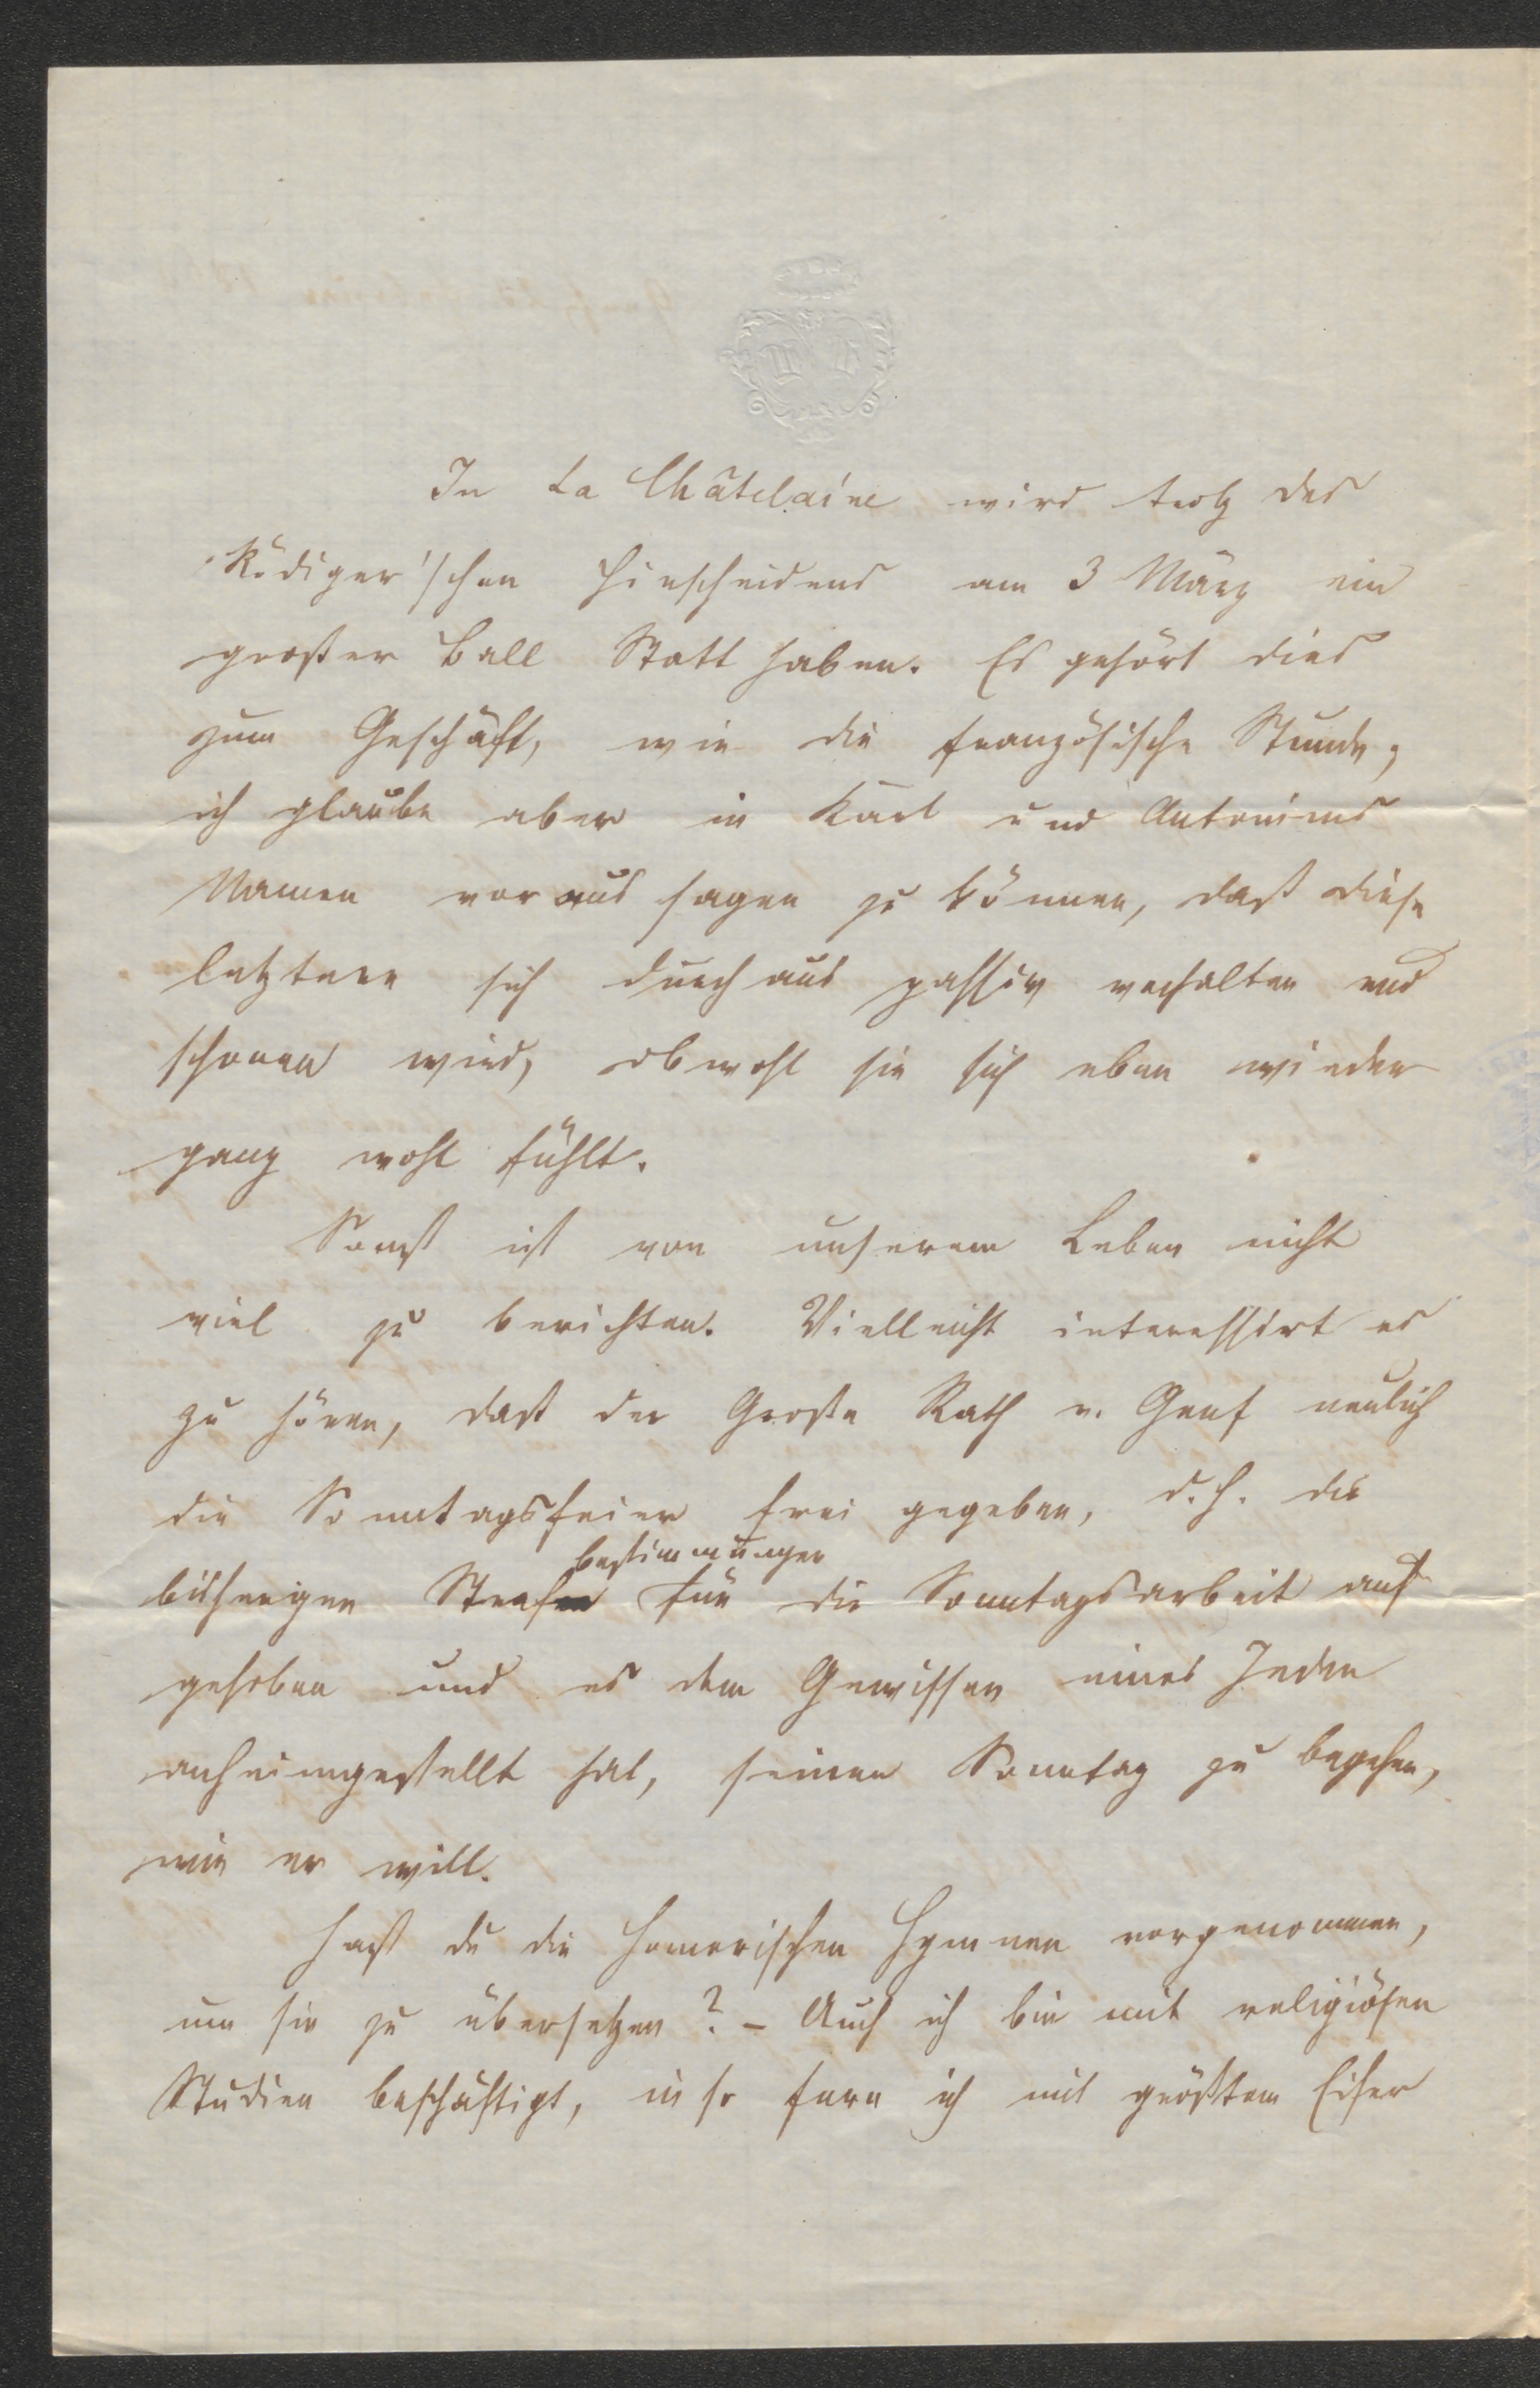 In La Châtelaine wird trotz des
Rödiger'schen Hinscheidens am 3 März ein
großer Ball Statt haben. Es gehört dies
zum Geschäft, wie die französische Stunde;
ich glaube aber in Karl und Antoniens
Namen voraus sagen zu können, daß diese
letztere sich durchaus passiv verhalten und
schonen wird, obwohl sie sich eben wieder
ganz wohl fühlt.
Sonst ist von unserem Leben nicht
viel zu berichten. Vielleicht interessirt es
zu hören, daß der Große Rath v. Genf neulich
die Sonntagsfeier frei gegeben, d. h. die
bestimmungen
bisherigen Strafen für die Sonntagsarbeit auf
gehoben und es dem Gewissen eines Jeden
anheimgestellt hat, seinen Sonntag zu begehen,
wie er will.
Hast du die Homerischen Hymnen vorgenommen,
um sie zu übersetzen? – Auch ich bin mit religiösen
Studien beschäftigt, in so fern ich mit größtem Eifer